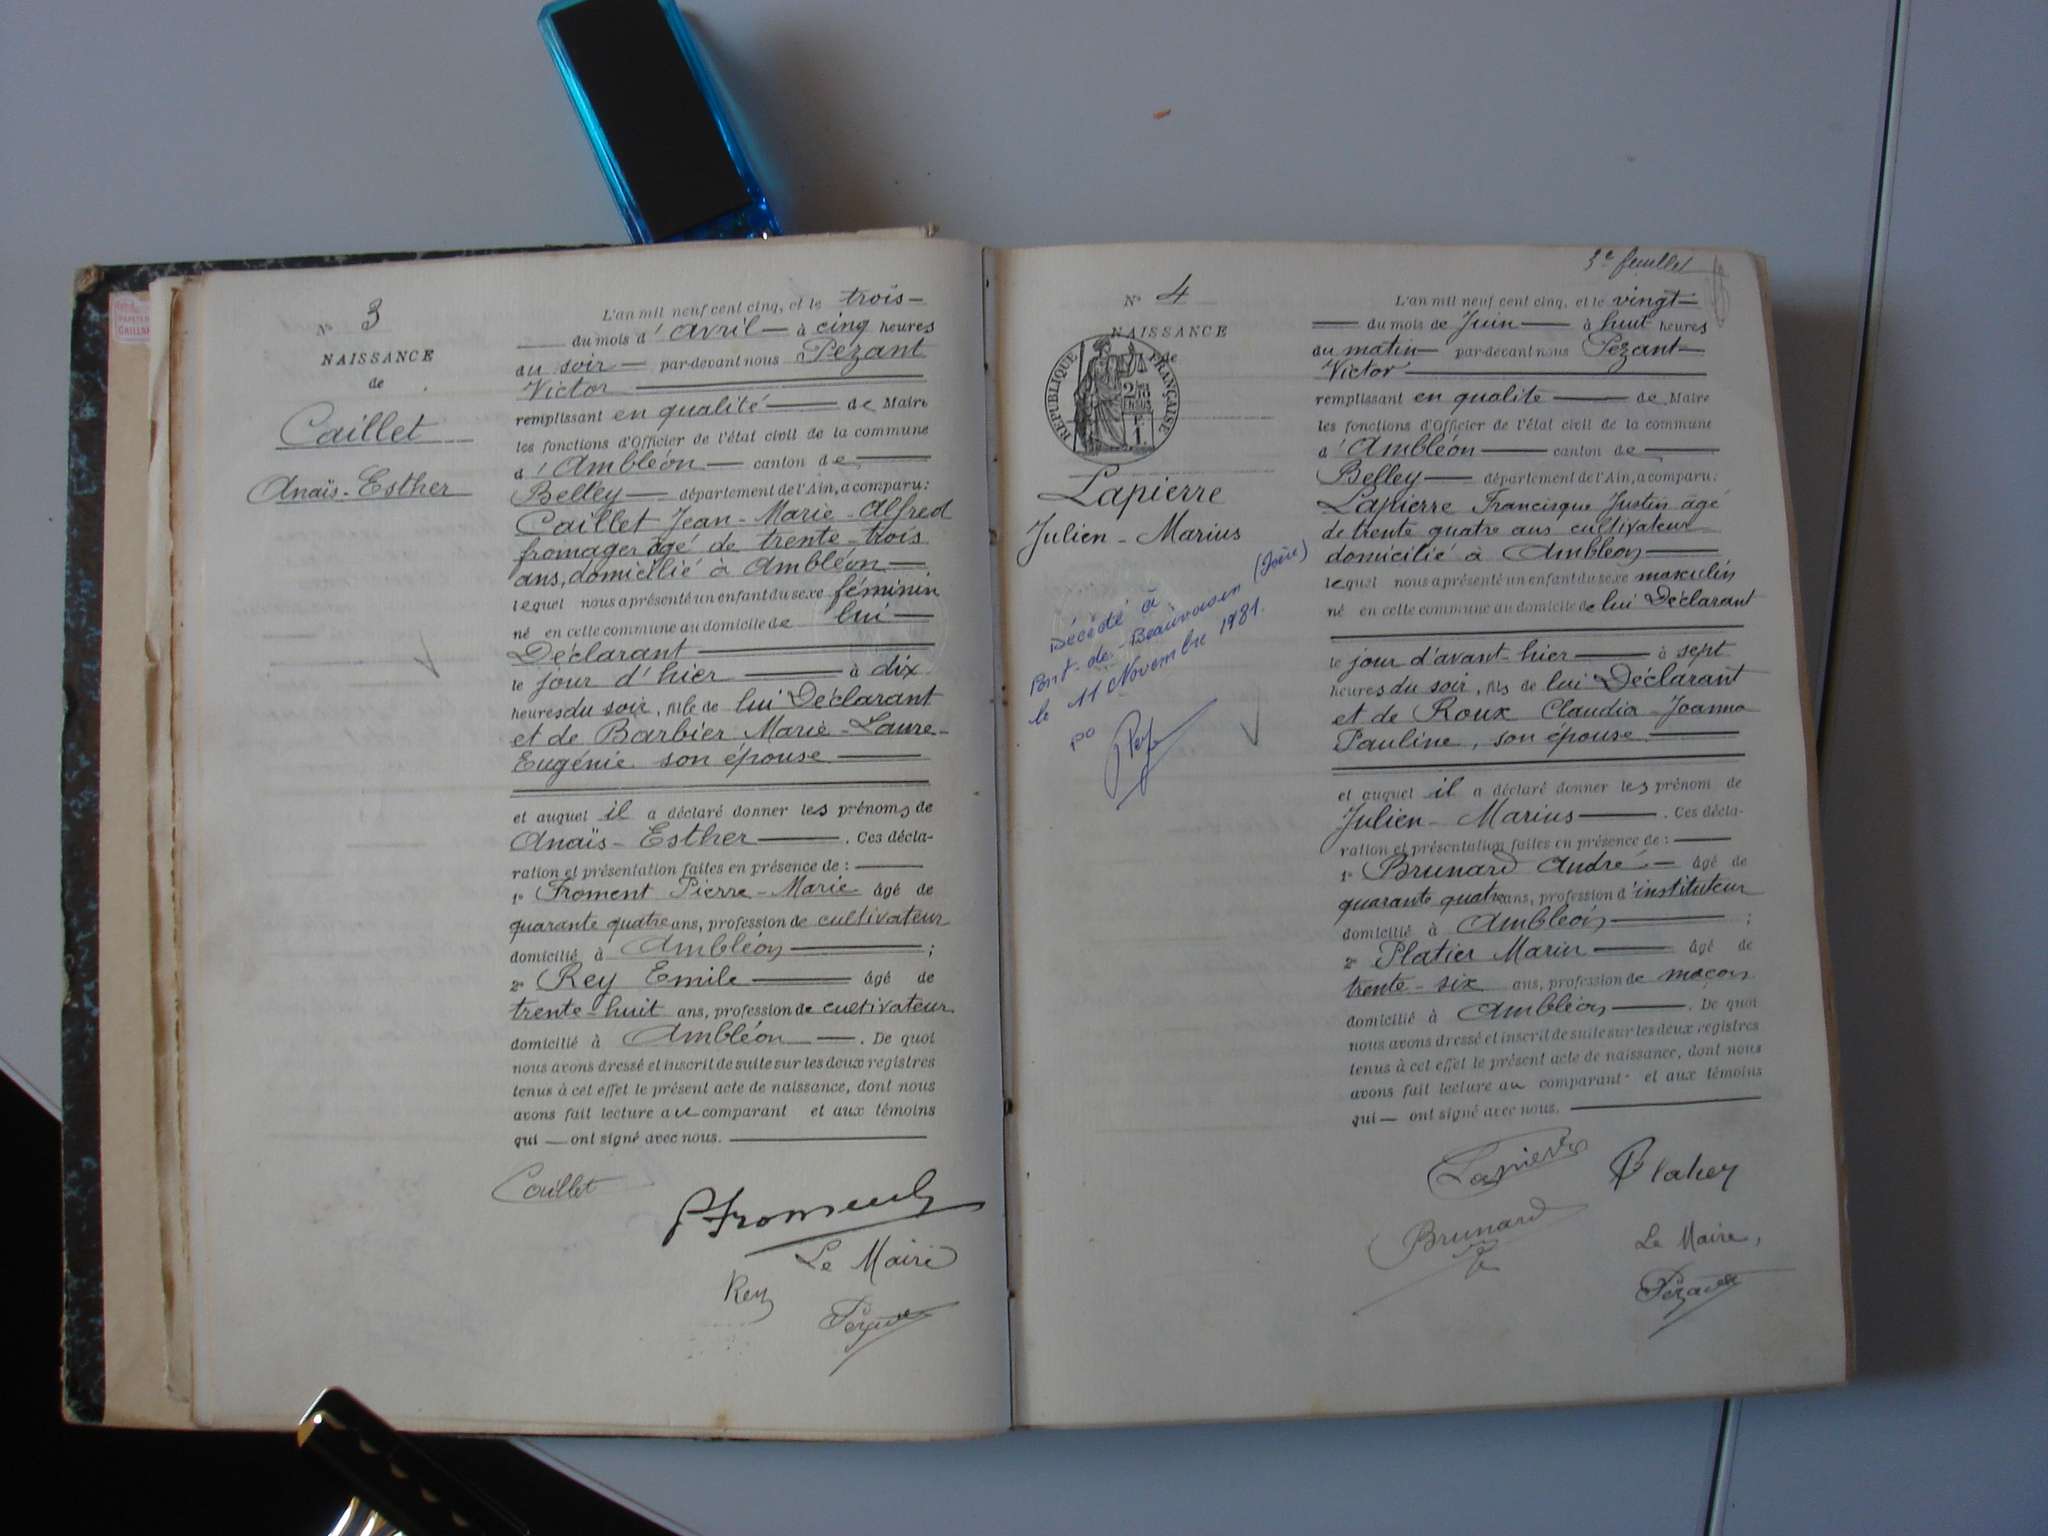 N° 3
NAISSANCE
de
Caillet
Anaïs-Esther
L'an mil neuf cent cinq, et le trois
du mois d'avril à cinq heures
du soir par-devant nous Pézant
Victor
remplissant en qualité de Maire
les fonctions d'Officier de l'état civil de la commune
d'Ambléon canton de
Belley département de l'Ain, a comparu:
Caillet Jean-Marie-Alfred
fromager âgé de trente-trois
ans, domicilié à Ambléon
lequel nous a présenté un enfant du sexe féminin
né en cette commune au domicile de lui
Déclarant
le jour d'hier à dix
heures du soir, fille de lui Déclarant
et de Barbier Marie-Laure-
Eugénie son épouse
et auquel il a déclaré donner les prénoms de
Anaïs-Esther. Ces décla-
ration et présentation faites en présence de:
1° Froment Pierre-Marie âgé de
quarante quatre ans, profession de cultivateur
domicilié à Ambléon;
2° Rey Emile âgé de
trente-huit ans, profession de cultivateur
domicilié à Ambléon. De quoi
nous avons dressé et inscrit de suite sur les deux registres
tenus à cet effet le présent acte de naissance, dont nous
avons fait lecture au comparant et aux témoins
qui ont signé avec nous.
Caillet
PFroment
Le Maire
Rey
Pezant
3e feuillet
N° 4
NAISSANCE
de
RÉPUBLIQUE FRANÇAISE
Lapierre
Julien-Marius
Décédé à
Pont-de-Beauvoisin (Isère)
le 11 Novembre 1981.
po
L'an mil neuf cent cinq, et le vingt
du mois de Juin à huit heures
du matin par-devant nous Pezant
Victor
remplissant en qualité de Maire
les fonctions d'Officier de l'état civil de la commune
d'Ambléon canton de
Belley département de l'Ain, a comparu:
Lapierre Francisque Justin âgé
de trente quatre ans cultivateur
domicilié à Ambléon
lequel nous a présenté un enfant du sexe masculin
né en cette commune au domicile de lui Déclarant
le jour d'avant-hier à sept
heures du soir, fils de lui Déclarant
et de Roux Claudia Joanna
Pauline, son épouse
et auquel il a déclaré donner les prénom de
Julien-Marius. Ces décla-
ration et présentation faites en présence de:
1° Brunard André âgé de
quarante quatre ans, profession d'instituteur
domicilié à Ambléon;
2° Platier Marin âgé de
trente-six ans, profession de maçon
domicilié à Ambléon. De quoi
nous avons dressé et inscrit de suite sur les deux registres
tenus à cet effet le présent acte de naissance, dont nous
avons fait lecture au comparant et aux témoins
qui ont signé avec nous.
Lapierre
Platier
Brunard
Le Maire,
Pezant